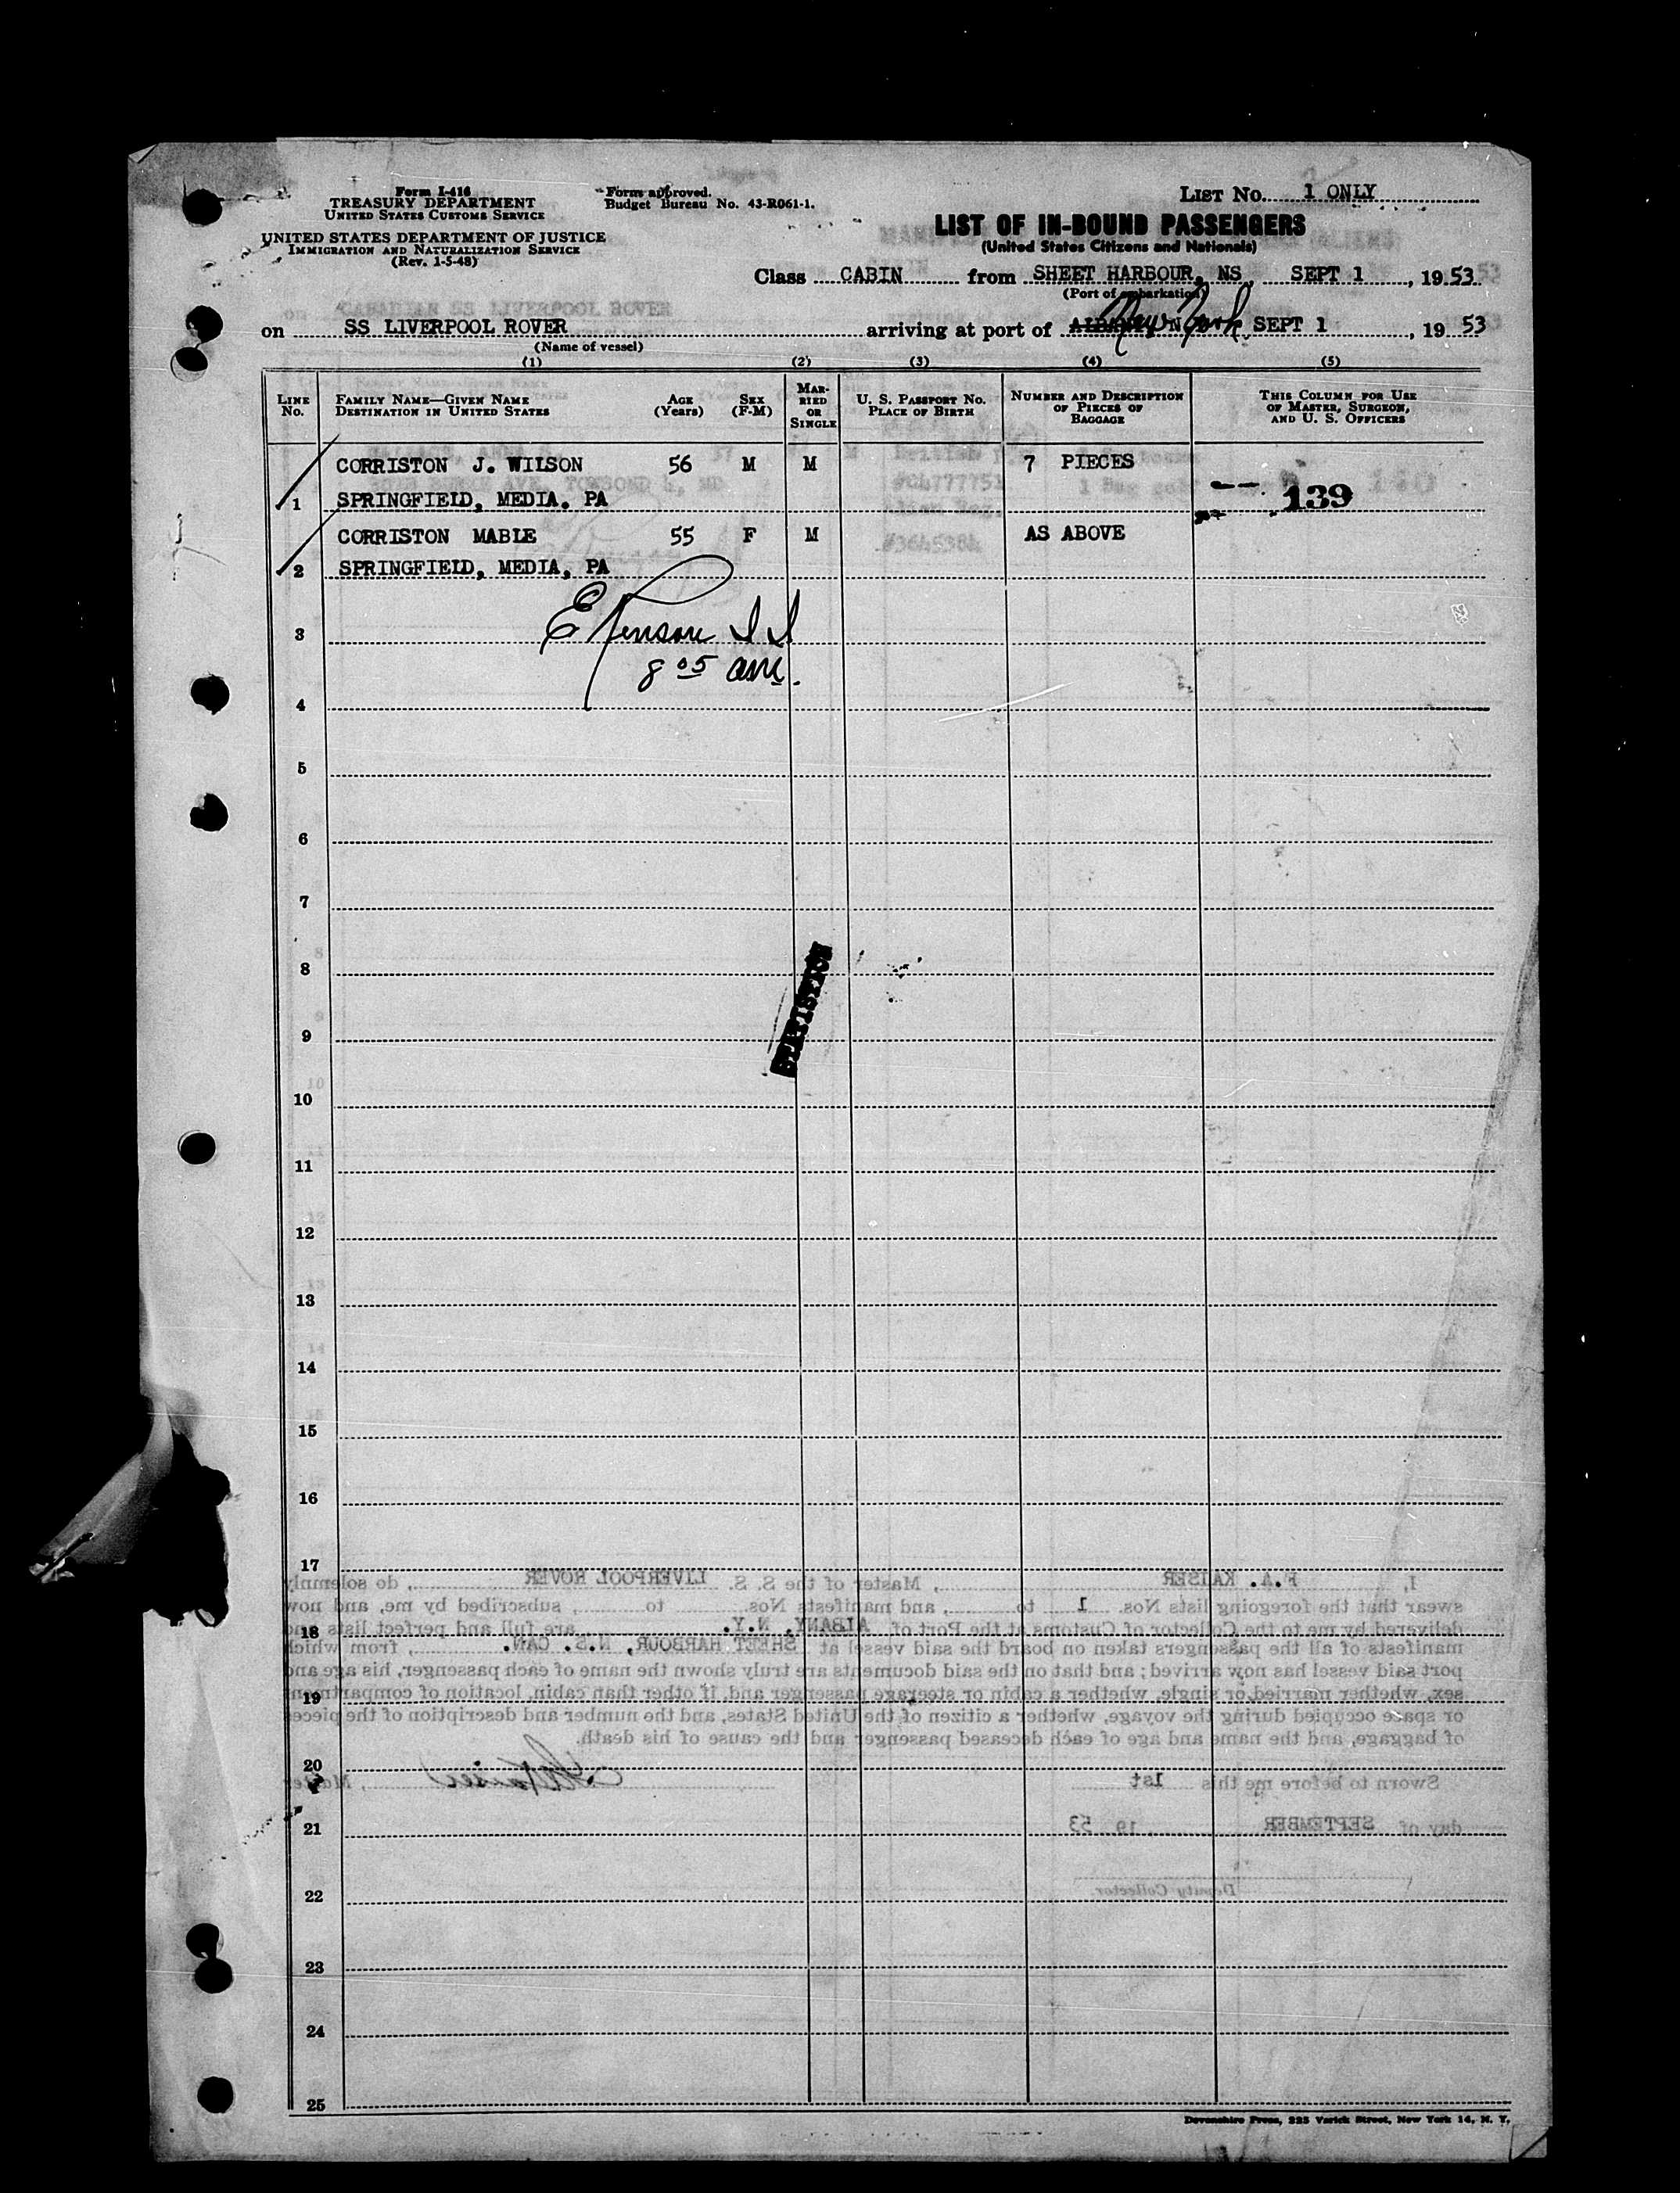 Form I-416
TREASURY DEPARTMENT
UNITED STATES CUSTOMS SERVICE
UNITED STATES DEPARTMENT OF JUSTICE
IMMIGRATION AND NATURALIZATION SERVICE
(Rev. 1-5-48)
Form approved.
Budget Bureau No. 43-R061-1.
LIST No. 1 ONLY
LIST OF IN-BOUND PASSENGERS
(United States Citizens and Nationals)
Class CABIN from SHEET HARBOUR, NS, SEPT 1, 1953
(Port of embarkation)
on SS LIVERPOOL ROVER arriving at port of New York SEPT 1, 1953
(Name of vessel)
(1) (2) (3) (4) (5)
LINE No.
FAMILY NAME—GIVEN NAME
DESTINATION IN UNITED STATES
AGE (Years)
SEX (F-M)
MARRIED OR SINGLE
U. S. PASSPORT NO.
PLACE OF BIRTH
NUMBER AND DESCRIPTION OF PIECES OF BAGGAGE
THIS COLUMN FOR USE OF MASTER, SURGEON, AND U. S. OFFICERS
CORRISTON J. WILSON 56 M M 7 PIECES
1 SPRINGFIELD, MEDIA. PA 139
CORRISTON MABLE 55 F M AS ABOVE
2 SPRINGFIELD, MEDIA, PA
3
8 05 am.
4
5
6
7
8
9
10
11
12
13
14
15
16
17
I, F.A. KAISER, Master of the S. S. LIVERPOOL ROVER, do solemnly
swear that the foregoing lists Nos. 1 to, and manifests Nos. to, subscribed by me, and now
18
delivered by me to the Collector of Customs at the Port of ALBANY, N.Y. are full and perfect lists and
manifests of all the passengers taken on board the said vessel at SHEET HARBOUR, N.S. CAN., from which
port said vessel has now arrived; and that on the said documents are truly shown the name of each passenger, his age and
19
sex, whether married or single, whether a cabin or steerage passenger and, if other than cabin, location of compartment
or space occupied during the voyage, whether a citizen of the United States, and the number and description of the pieces
of baggage, and the name and age of each deceased passenger and the cause of his death.
20
Sworn to before me this 1st, Master
21
day of SEPTEMBER, 1953
Deputy Collector.
22
23
24
25
Devonshire Press, 225 Varick Street, New York 14, N. Y.